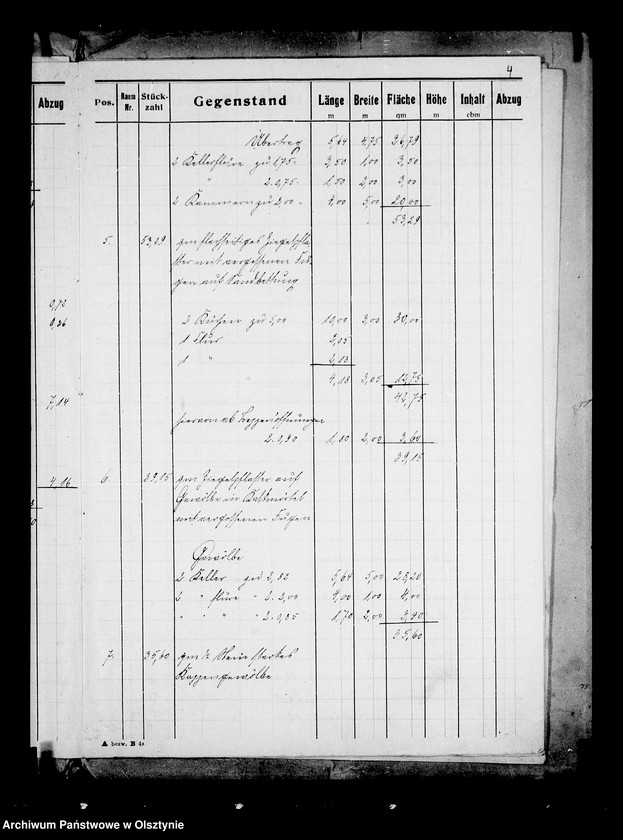 4
Abzug
Pos. Raum Nr. Stück-zahl Gegenstand Länge m Breite m Fläche qm Höhe m Inhalt cbm Abzug
Übertrag 5,64 4,75 26,79
2 Kellerflure zu 1,75 - 3,50 1,00 3,50
" 2 . 0,75 - 1,50 2,00 3,00
2 Kammern zu 2,00 - 4,00 5,00 20,00
53,29
5. 53,29 qm flachseitiges Ziegelpfla-
ster mit vergossenen Fu-
gen auf Sandbettung
0,72
0,36
2 Küchen zu 5,00 10,00 3,00 30,00
1 Flur 2,05
1 " 2,13
4,18 3,05 12,75
42,75
7,14
hiervon ab Treppenöffnungen
2 . 0,90 1,80 2,00 3,60
39,15
4,16
6. 39,15 qm Ziegelpflaster auf
Gewölbe in Kalkmörtel
mit vergossenen Fugen
Gewölbe
2 Keller zu 2,82 5,64 5,00 28,20
2 " flure " 2 . 2,00 4,00 1,00 4,00
" " " " 2 . 0,85 1,70 2,00 3,40
35,60
7. 35,60 qm ½ Stein starkes
Kappengewölbe
A bezw. B 4a
Archiwum Państwowe w Olsztynie